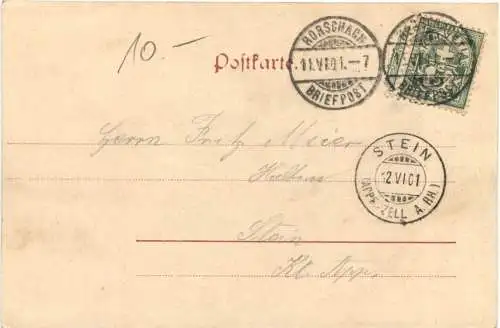 10.-
Postkarte.
RORSCHACH
11.VI.01.-7
BRIEFPOST
BRIEFPOST
Herrn Fritz Meier
STEIN
12.VI.01
(APPENZELL A. RH.)
Stein
Kt. App.